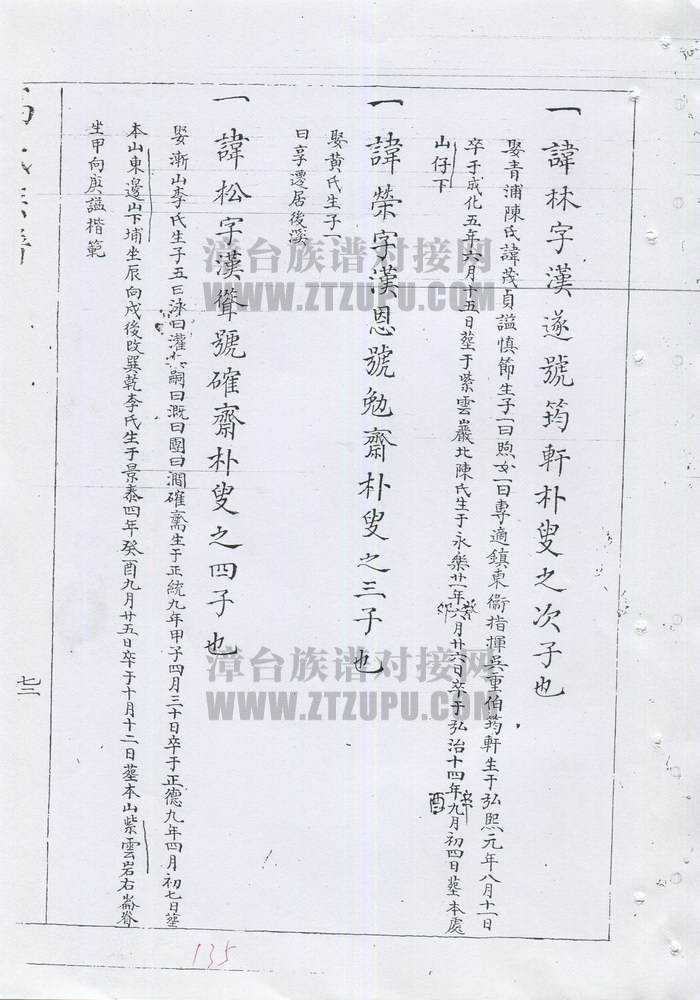 一諱林字漢遂號筠軒朴叟之次子也
娶青浦陳氏諱茂貞謚慎節生子一曰煦女一曰專適鎮東衞指揮吳重伯筠軒生于弘熙元年八月十一日
卒于成化五年六月十五日塟于紫雲巖北陳氏生于永樂廿一年癸卯六月廿六日卒于弘治十四年辛酉九月初四日塟本處
山仔下
一諱榮字漢恩號勉齋朴叟之三子也
娶黃氏生子一
曰享遷居後溪
一諱松字漢聳號確齋朴叟之四子也
娶漸山李氏生子五曰泳曰灌嗣曰溉曰團曰澗確齋生于正統九年甲子四月三十日卒于正德九年四月初七日塟
本山東邊山下埔坐辰向戌後改巽乾李氏生于景泰四年癸酉九月廿五日卒于十月十二日塟本山紫雲岩右崙脊
坐甲向庚謚楷範
七二
135
漳台族谱对接网
WWW.ZTZUPU.COM
漳台族谱对接网
WWW.ZTZUPU.COM